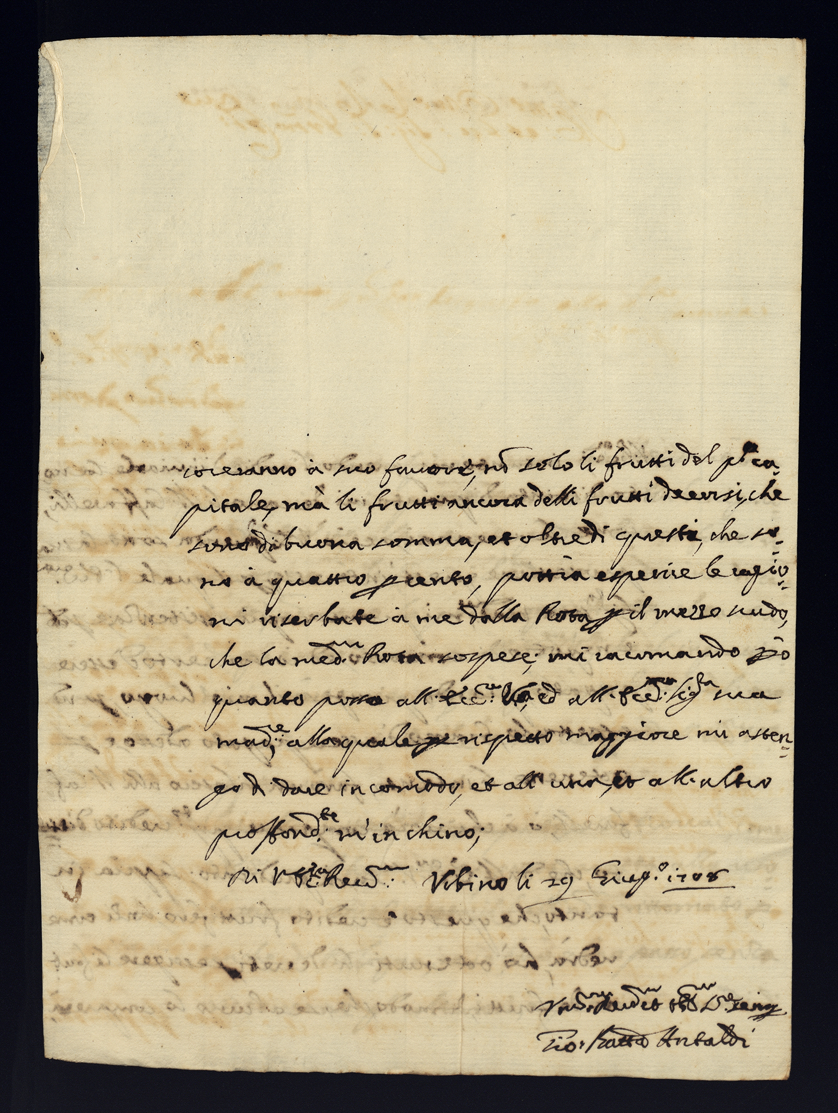 correranno à suo favore, nō solo li frutti del pͬ ca-
pitale, mà li frutti ancora delli frutti decorsi, che
sono di buona somma, et oltre di questi, che so-
no à quattro p cento, potria esperire le ragio-
ni riserbate à me dalla Rota p il mezzo scudo,
che la med.ma Rota sospese, mi racomando p.ò
quanto posso all' Ecc.mo ed all' Ecc.ma sig.ra sua
mad.e alla quale p rispetto maggiore mi asten-
go di dare incomodo, et all' una, et all' altro
proffond.te m'inchino;
Di V. Recc.ma Vrbino li 29 Giug.o 1708
Gio: Batta Antaldi